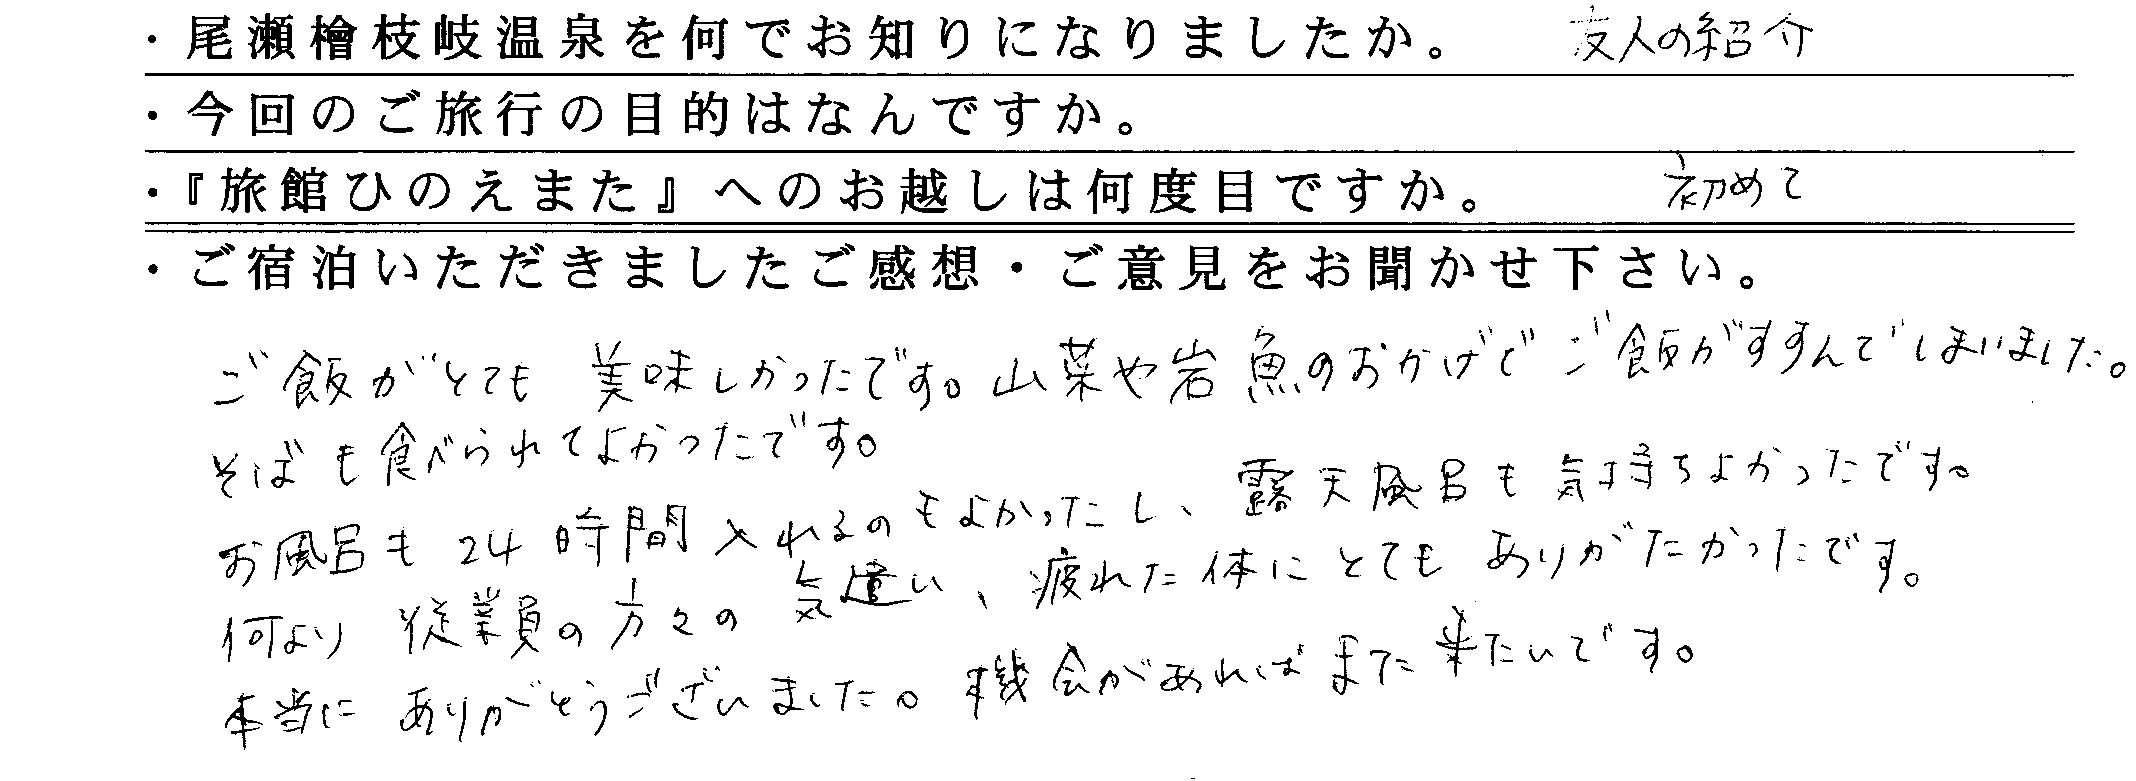 ・尾瀬檜枝岐温泉を何でお知りになりましたか。 友人の紹介
・今回のご旅行の目的はなんですか。
・『旅館ひのえまた』へのお越しは何度目ですか。 初めて
・ご宿泊いただきましたご感想・ご意見をお聞かせ下さい。
ご飯がとても美味しかったです。山菜や岩魚のおかげでご飯がすすんでしまいました。
そばも食べられてよかったです。
お風呂も24時間入れるのもよかったし、露天風呂も気持ちよかったです。
何より従業員の方々の気遣い、疲れた体にとてもありがたかったです。
本当にありがとうございました。機会があればまた来たいです。